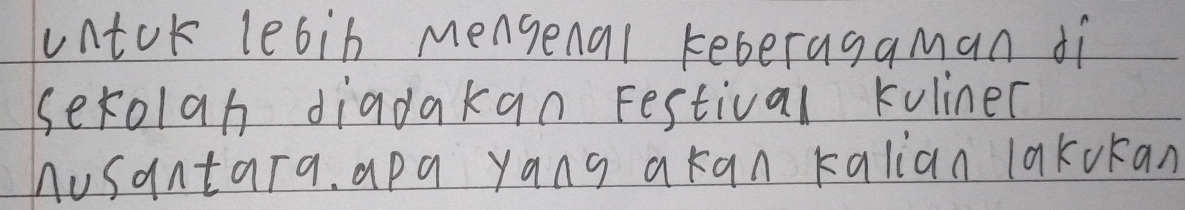 untuk lebih Mengenal keberagaman di
sekolah diadakan Festival kuliner
nusantara. apa yang akan kalian lakukan